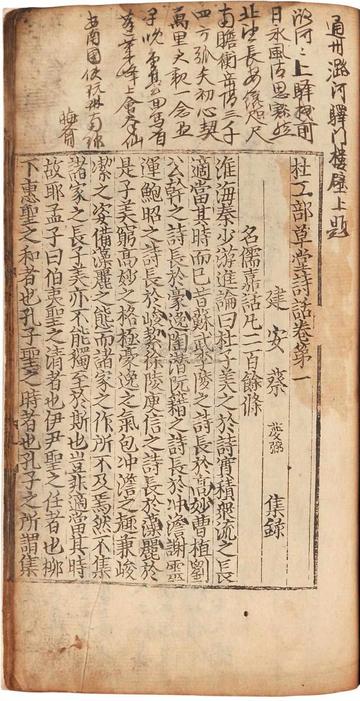 通州潞河驛門樓壁上題
潞河上驛樓前
日永風
北望長安 咫尺
南瞻衡岳 三千
四方弧矢初心契
萬里 一念
子
南國使
杜工部草堂詩話卷第一
建安蔡夢弼集錄
名儒嘉話凡二百餘條
淮海秦少游進論曰杜子美之於詩實積衆流之長
適當其時而已昔蘇武李陵之詩長於高妙曹植劉
公幹之詩長於豪逸陶潛阮籍之詩長於冲澹謝靈
運鮑照之詩長於峻潔徐陵庾信之詩長於藻麗於
是子美窮高妙之格極豪逸之氣包冲澹之趣兼峻
潔之姿備藻麗之態而諸家之作所不及焉然不集
諸家之長子美亦不能獨至於斯也豈非適當其時
故耶孟子曰伯夷聖之清者也伊尹聖之任者也柳
下惠聖之和者也孔子聖之時者也孔子之所謂集